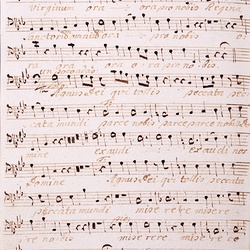 Virginum ora ora pro nobis Regina
ora pro nobis o
ra ora ora o ra pro no bis
Agnus dei qui tollis peccata
cata mundi parce nobis parce parce nobis
mine exaudi exaudi nos
Domine Agnus dei qui tollis peccata
peccata mundi mise rere misere
re nobis misere rere misere